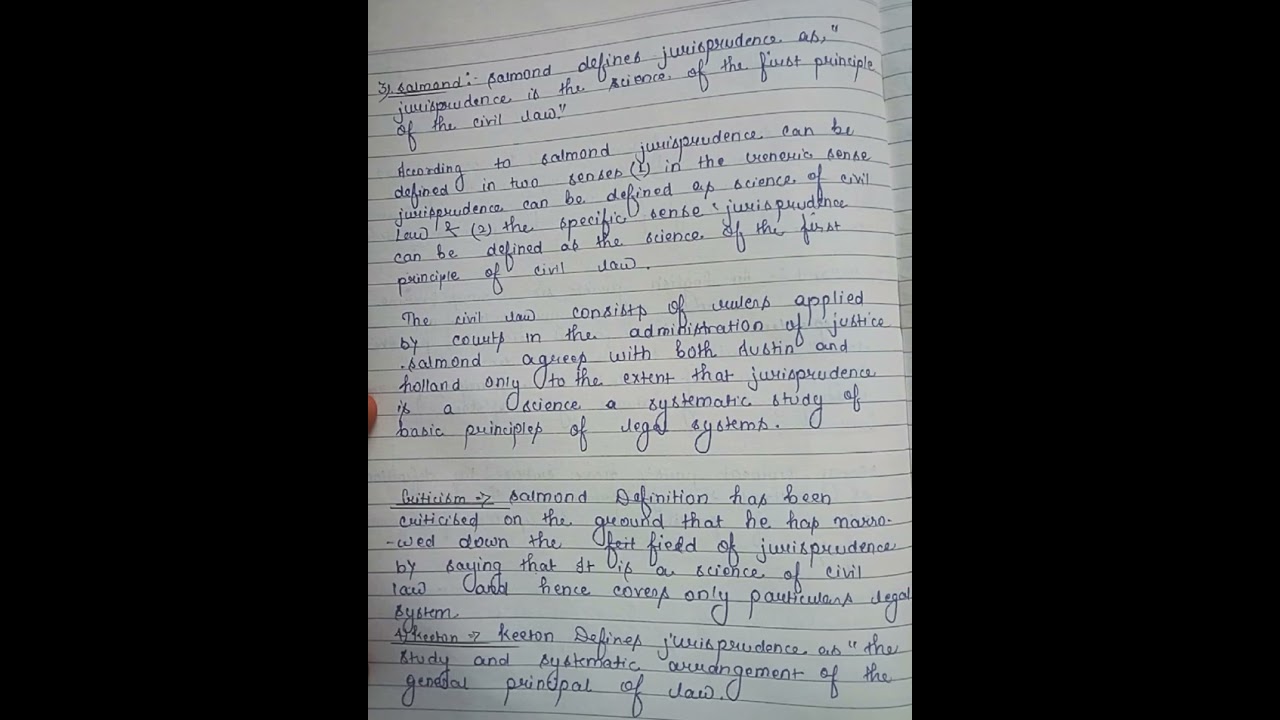 3) Salmond :- Salmond defines jurisprudence as, "
jurisprudence is the science of the first principle
of the civil law."
According to salmond jurisprudence can be
defined in two senses (1) in the Generic sense
jurisprudence can be defined as science of civil
Law & (2) the specific sense jurisprudence
can be defined as the science of the first
principle of civil law.
The civil law consists of rulers applied
by courts in the administration of justice
.salmond agrees with both Austin and
holland only to the extent that jurisprudence
is a science a systematic study of
basic principles of legal systems.
Criticism → Salmond Definition has been
criticised on the ground that he has narro-
-wed down the field of jurisprudence
by saying that it is a science of civil
law and hence covers only particulars legal
system.
4) Keeton → Keeton Defines jurisprudence as "the
study and systematic arrangement of the
general principal of law.